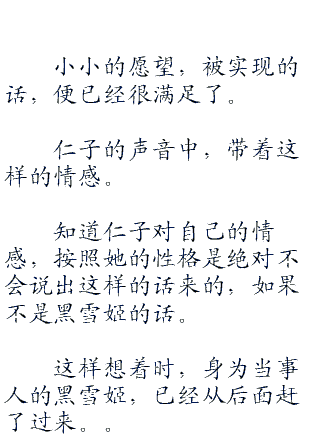 小小的愿望，被实现的
话，便已经很满足了。
仁子的声音中，带着这
样的情感。
知道仁子对自己的情
感，按照她的性格是绝对不
会说出这样的话来的，如果
不是黑雪姬的话。
这样想着时，身为当事
人的黑雪姬，已经从后面赶
了过来。。